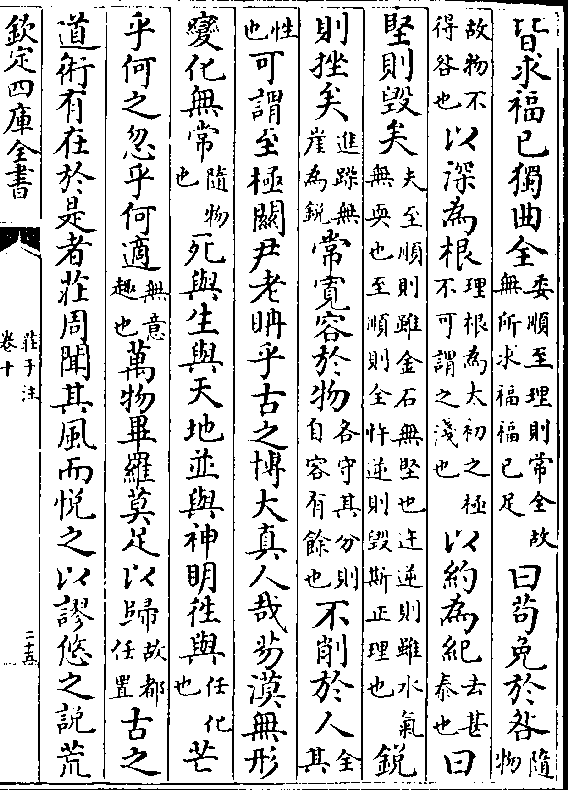 皆求福已獨曲全委順至理則常全故無所求福福已足曰苟免於咎隨物
故物不得咎也以深為根理根為太初之極不可謂之淺也以約為紀去甚泰也曰
堅則毀矣夫至順則雖金石無堅也迕逆則雖水氣無耎也至順則全忤逆則毀斯正理也銳
則挫矣進躁無崖為銳常寛容於物各守其分則自容有餘也不削於人全其
性也可謂至極關尹老聃乎古之博大真人哉芴漠無形
變化無常隨物也死與生與天地並與神明徃與任化也芒
乎何之忽乎何適無意趣也萬物畢羅莫足以歸故都任置古之
道術有在於是者莊周聞其風而悅之以謬悠之說荒
欽定四庫全書
莊子注
卷十
二十五